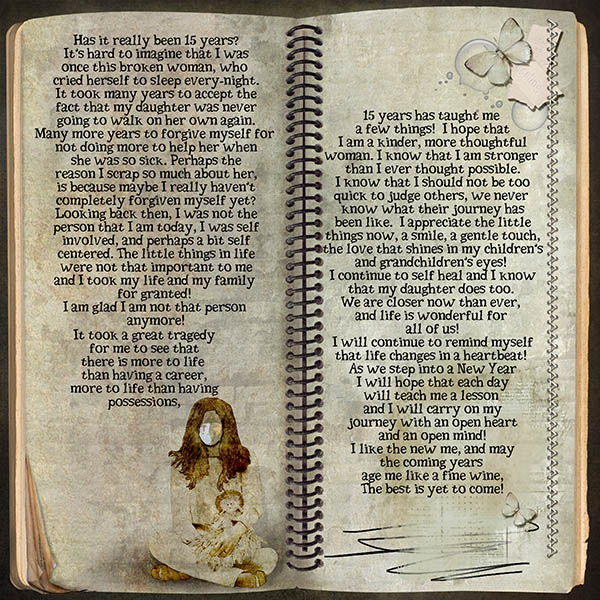 Has it really been 15 years?
It's hard to imagine that I was
once this broken woman, who
cried herself to sleep every-night.
It took many years to accept the
fact that my daughter was never
going to walk on her own again.
Many more years to forgive myself for
not doing more to help her when
she was so sick. Perhaps the
reason I scrap so much about her,
is because maybe I really haven't
completely forgiven myself yet?
Looking back then, I was not the
person that I am today, I was self
involved, and perhaps a bit self
centered. The little things in life
were not that important to me
and I took my life and my family
for granted!
I am glad I am not that person
anymore!
It took a great tragedy
for me to see that
there is more to life
than having a career,
more to life than having
possessions,
15 years has taught me
a few things! I hope that
I am a kinder, more thoughtful
woman. I know that I am stronger
than I ever thought possible.
I know that I should not be too
quick to judge others, we never
know what their journey has
been like. I appreciate the little
things now, a smile, a gentle touch,
the love that shines in my children's
and grandchildren's eyes!
I continue to self heal and I know
that my daughter does too.
We are closer now than ever,
and life is wonderful for
all of us!
I will continue to remind myself
that life changes in a heartbeat!
As we step into a New Year
I will hope that each day
will teach me a lesson
and I will carry on my
journey with an open heart
and an open mind!
I like the new me, and may
the coming years
age me like a fine wine,
The best is yet to come!